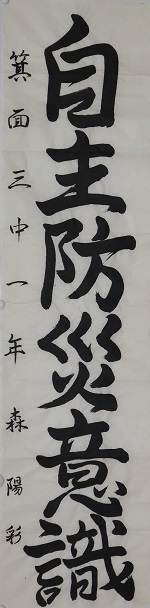 自主防災意識
箕面三中一年森陽彩